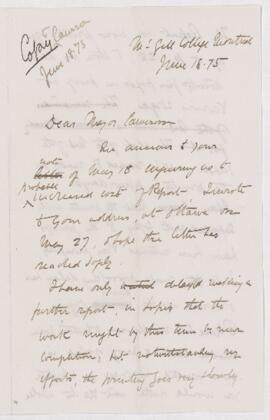 Copy to Cameron
June 18. 75
McGill College Montreal
June 18. 75
Dear Major Cameron
In answer to your
note of May 18 enquiring as to
probable increased cost of Report I wrote
to your address, at Ottawa on
May 27, & hope the letter has
reached safely.
I have only delayed making a
further report, in hopes that the
work might by this time be near
completion; but notwithstanding my
efforts, the printing goes very slowly